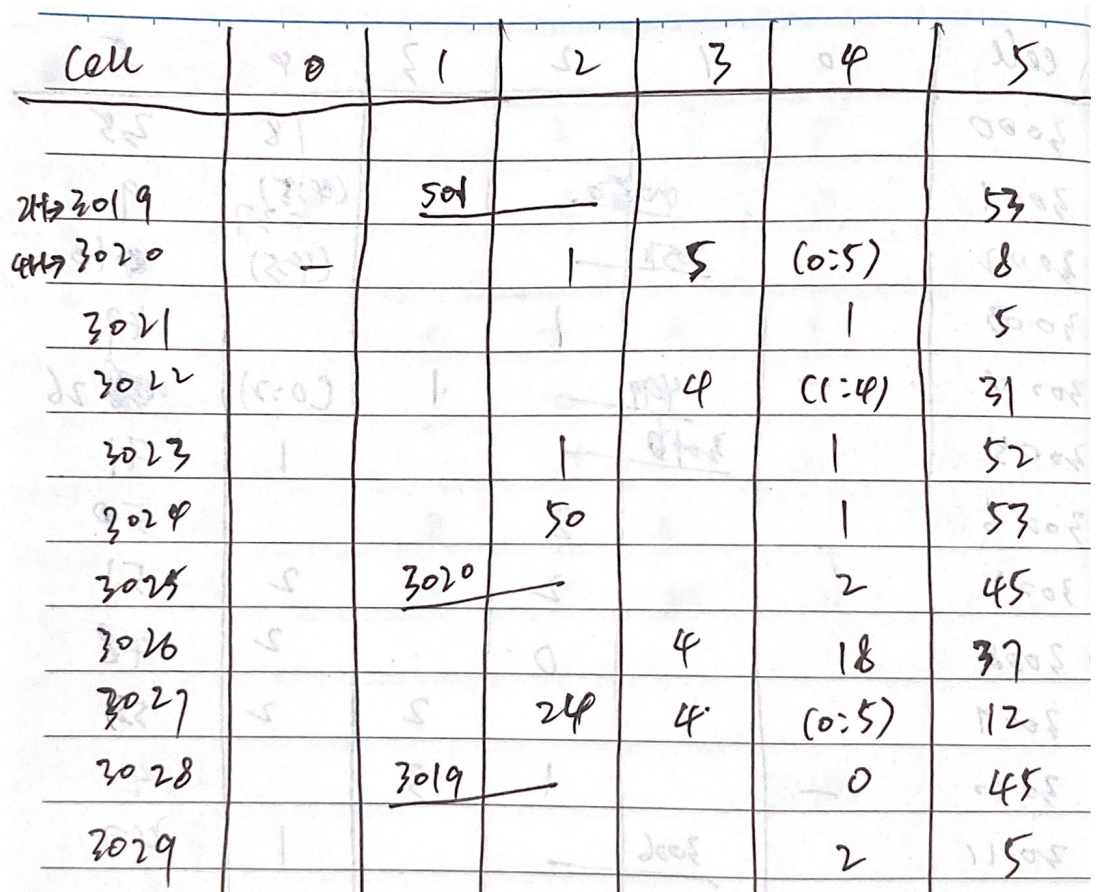 Cell 0 1 2 3 4 5
2H→3019 501 53
4H→3020 — 1 5 (0:5) 8
3021 1 5
3022 4 (1:4) 31
3023 1 1 52
3024 50 1 53
3025 3020 2 45
3026 4 18 37
3027 24 4 (0:5) 12
3028 3019 0 45
3029 2 5